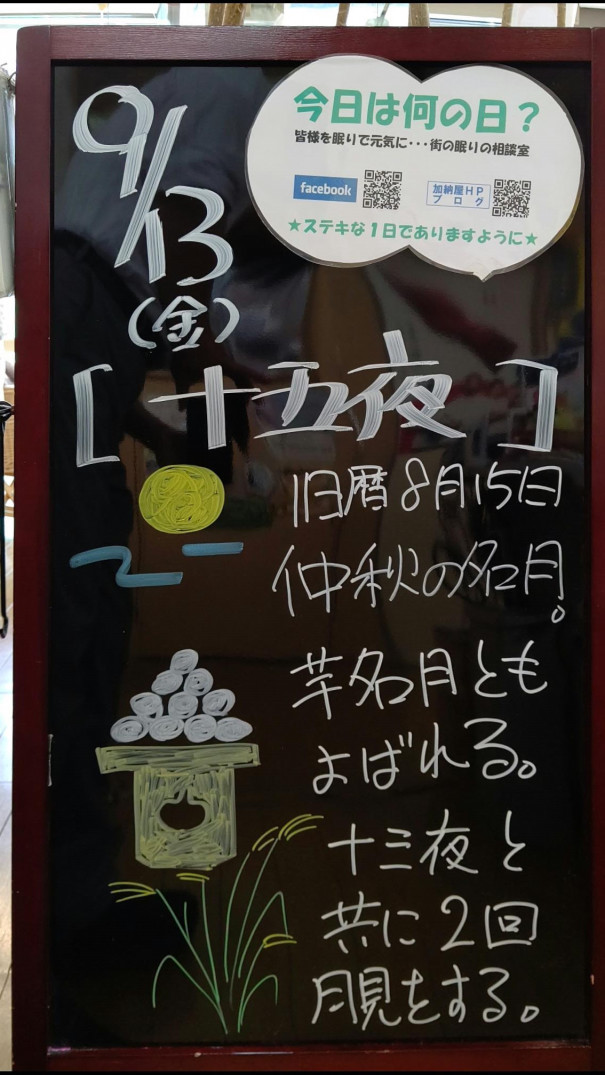 今日は何の日？
皆様を眠りで元気に・・・街の眠りの相談室
facebook
加納屋ＨＰ
ブログ
★ステキな１日でありますように★
9/13
(金)
[十五夜]
旧暦8月15日
仲秋の名月。
芋名月とも
よばれる。
十三夜と
共に2回
月見をする。